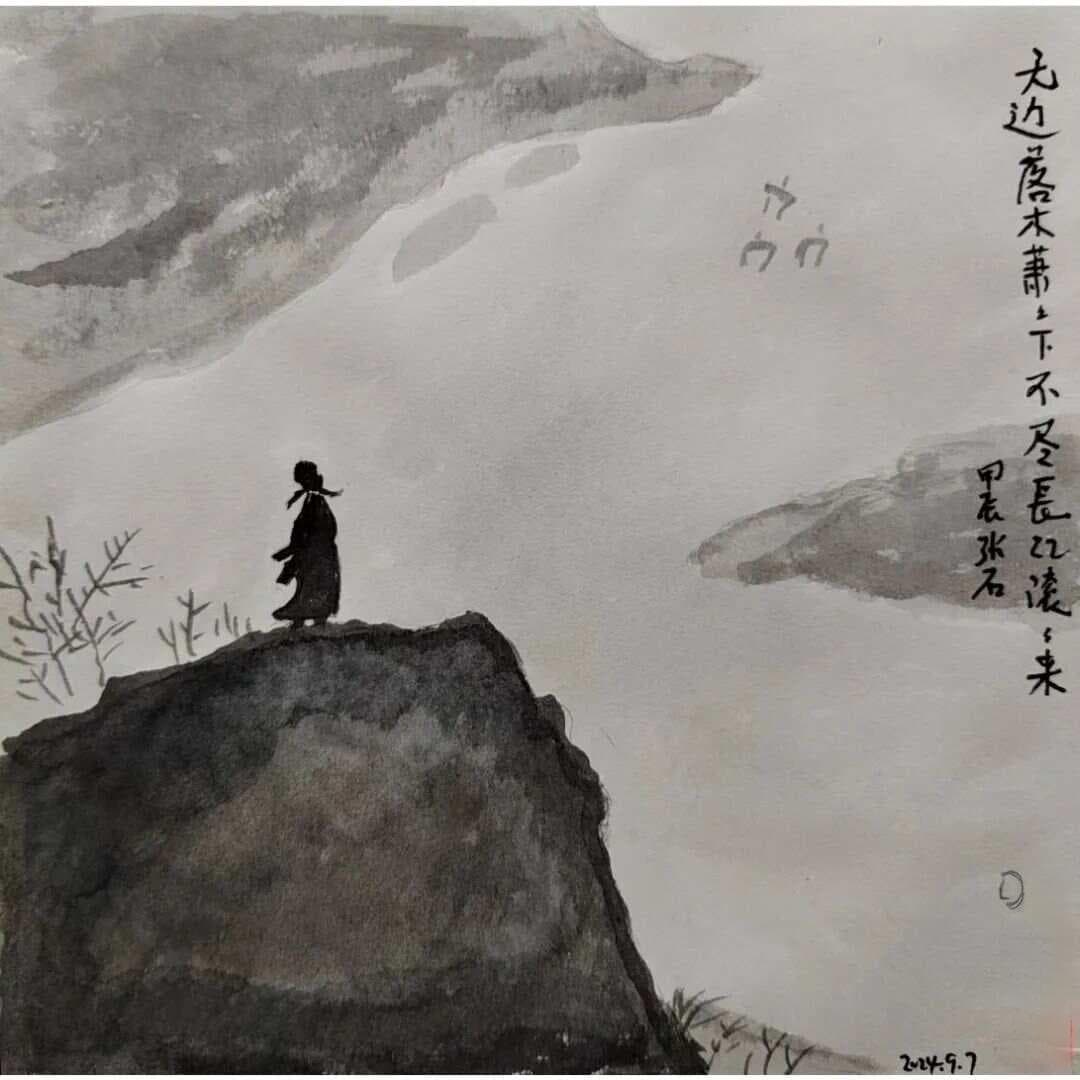 无边落木萧〻下不尽長江滚〻来
甲辰 张石
2024.9.7